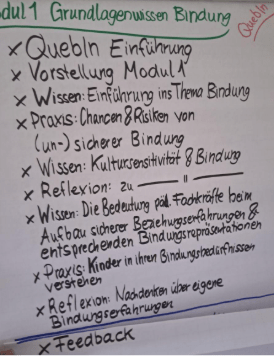 dul 1 Grundlagenwissen Bindung
QuebIn
x QuebIn Einführung
x Vorstellung Modul 1
x Wissen: Einführung ins Thema Bindung
x Praxis: Chancen & Risiken von
(un-) sicherer Bindung
x Wissen: Kultursensitivität & Bindung
x Reflexion: zu — " —
x Wissen: Die Bedeutung päd. Fachkräfte beim
Aufbau sicherer Beziehungserfahrungen &
entsprechenden Bindungsrepräsentationen
x Praxis: Kinder in ihren Bindungsbedürfnissen
verstehen
x Reflexion: Nachdenken über eigene
Bindungserfahrungen
x Feedback